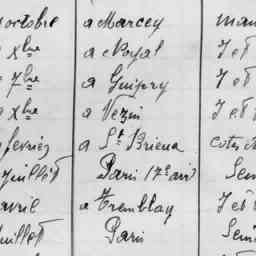 octobre a Marcey man
Xbre a Noyal J et
7bre a Guipry J et
Xbre a Vezin J et
fevrier a St Brieuc cotes
Juillet Paris 17e arr Sem
avril a Tremblay J et
Juillet Paris Sein